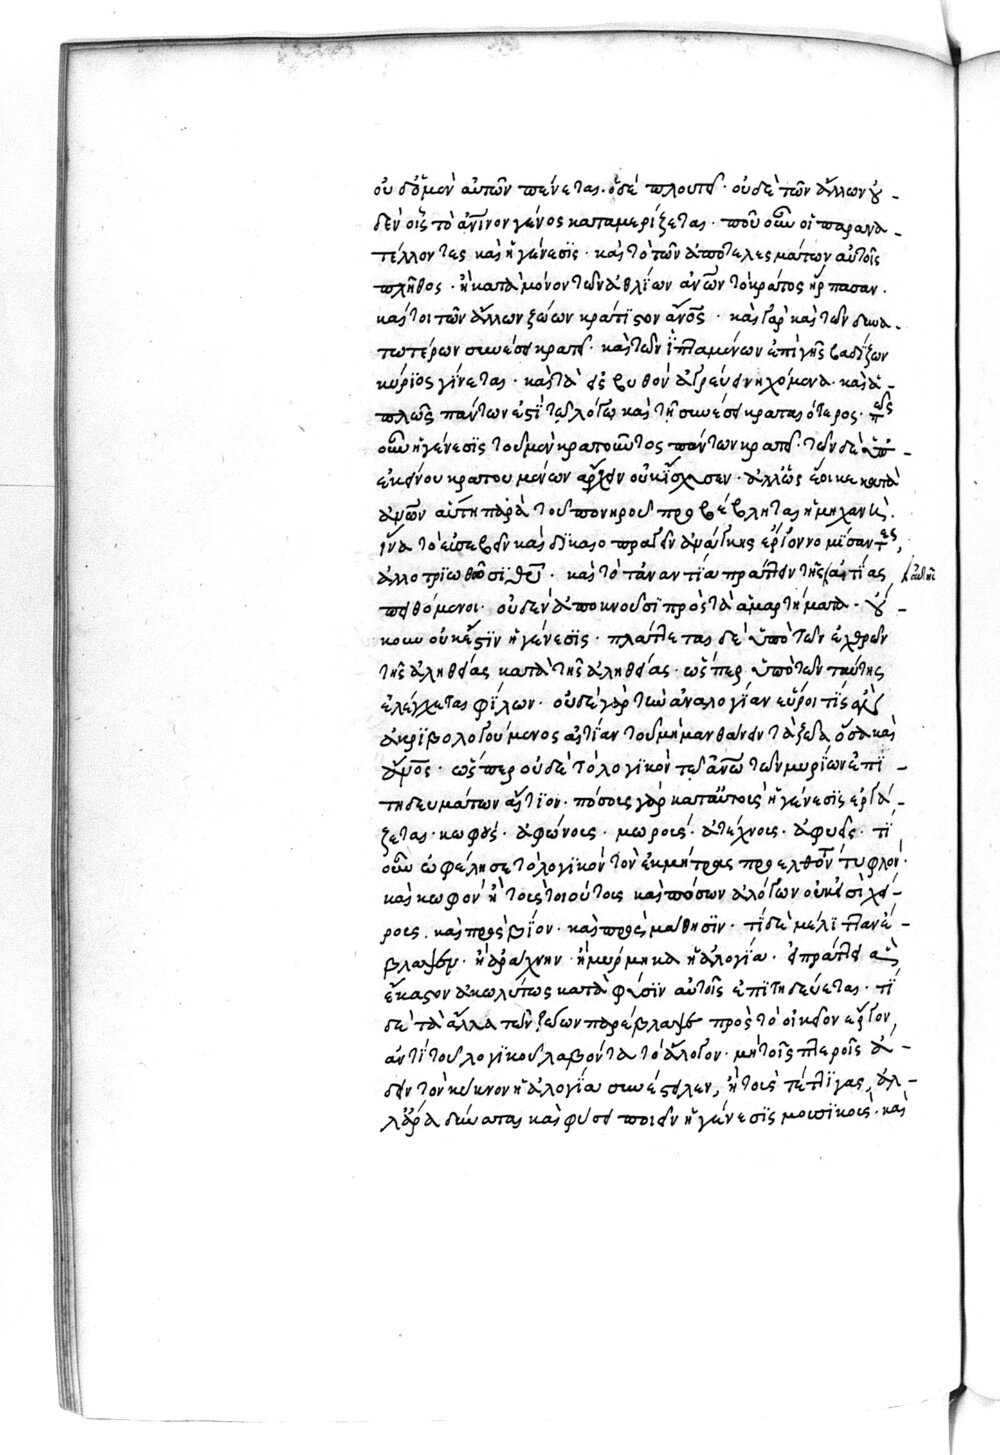 οὐδ' ὁ μὲν αὐτῶν πένεται. ὁ δὲ πλουτεῖ. οὐδὲ τῶν ἄλλων οὐ-
δὲν οἷς τὸ ἀνῖνον γένος καταμερίζεται. ποῦ οὖν οἱ παρανα-
τέλλοντες καὶ ἡ γένεσϊς. καὶ τὸ τῶν ἀποτελεσμάτων αὐτοῖς
πλῆθος. ἢ κατὰ μόνον τῶν ἀθλίων ἀνων τὸ κράτος ἥρπασαν.
καίτοι τῶν ἄλλων ζώων κράτιστον ἄνος. καὶ γὰρ καὶ τῶν δυνα-
τωτέρων συνέσει κρατεῖ. καὶ τῶν ἱπταμένων ἐπὶ γῆς βαδίζων
κύριος γίνεται. καὶ τὰ ἐν βυθῶ ἀγρεύει νηχόμενα. καὶ ἁ-
πλῶς πάντων ἐστὶ τῶ λόγω καὶ τῆ συνέσει κραταιότερος. πῶς
οὖν ἡ γένεσϊς τοῦ μὲν κρατοῦντος πάντων κρατεῖ. τῶν δὲ ὑπ'
ἐκείνου κρατουμένων ἄρχειν οὐκ ἴσχυσεν. ἀλλ' ὡς ἔοικε κατὰ
ἀνων αὕτη παρὰ τοῦ πονηροῦ προβέβληται ἡ μηχανή.
ἵνα τὸ εὐσεβεῖν καὶ δικαιοπραγεῖν ἀνάγκης ἔργον νομίσαντες,
ἀλλοτριωθῶσϊ θεοῦ. καὶ τὸ τἀναντία πράττειν τῆς αἰτίας
πειθόμενοι. οὐδὲν ἀποκνοῦσϊ πρὸς τὰ ἁμαρτήματα. οὐ-
κουν οὐκ ἔστϊν ἡ γένεσϊς. πλάττεται δὲ ὑπὸ τῶν ἐχθρῶν
τῆς ἀληθείας κατὰ τῆς ἀληθείας. ὥσπερ ὑπὸ τῶν ταύτης
ἐλέγχεται φίλων. οὐδὲ γὰρ τὴν ἀναλογίαν εὕροι τϊς
ἀκριβολογούμενος αἰτίαν τοῦ μὴ μανθάνειν τὰ ζῶα ὅσα καὶ
ἄνος. ὥσπερ οὐδὲ τὸ λογϊκὸν τῶ ἀνω τῶν μυρίων ἐπϊ-
τηδευμάτων αἴτϊον. πόσοις γὰρ κατὰ τοὺς ἡ γένεσϊς ἐργά-
ζεται. κωφοῖς. ἀφώνοις. μωροῖς. ἀτέχνοις. ἀφυέσι. τί
οὖν ὠφέλησε τὸ λογϊκὸν τὸν ἐκ μήτρας προελθόντα τυφλὸν.
καὶ κωφὸν ἢ τοῖς τοιούτοις καὶ πόσων ἀλόγων οὐκ εἰσὶ χεί-
ρους. καὶ πρὸς βίον. καὶ πρὸς μάθησϊν. τί δὲ μέλιτταν ἔ-
βλαψεν. ἢ ἀράχνην. ἢ μύρμηκα ἡ ἀλογία. ἐπράττε
ἕκαστον ἀκωλύτως κατὰ φύσϊν αὐτοῖς ἐπϊτηδεύεται. τί
δὲ τὰ ἄλλα τῶν ζώων παρέβλαψε πρὸς τὸ οἰκεῖον ἔργον,
ἀντὶ τοῦ λογϊκοῦ λαβόντα τὸ ἄλογον. μὴ τοῖς πτεροῖς ἄ-
δειν τὸν κύκνον ἡ ἀλογία συνέστειλεν, ἢ τοὺς τέττϊγας, ἀλ-
λ' ἄρα δύναται καὶ φύσει ποιεῖν ἡ γένεσϊς μουσϊκοὺς. καὶ